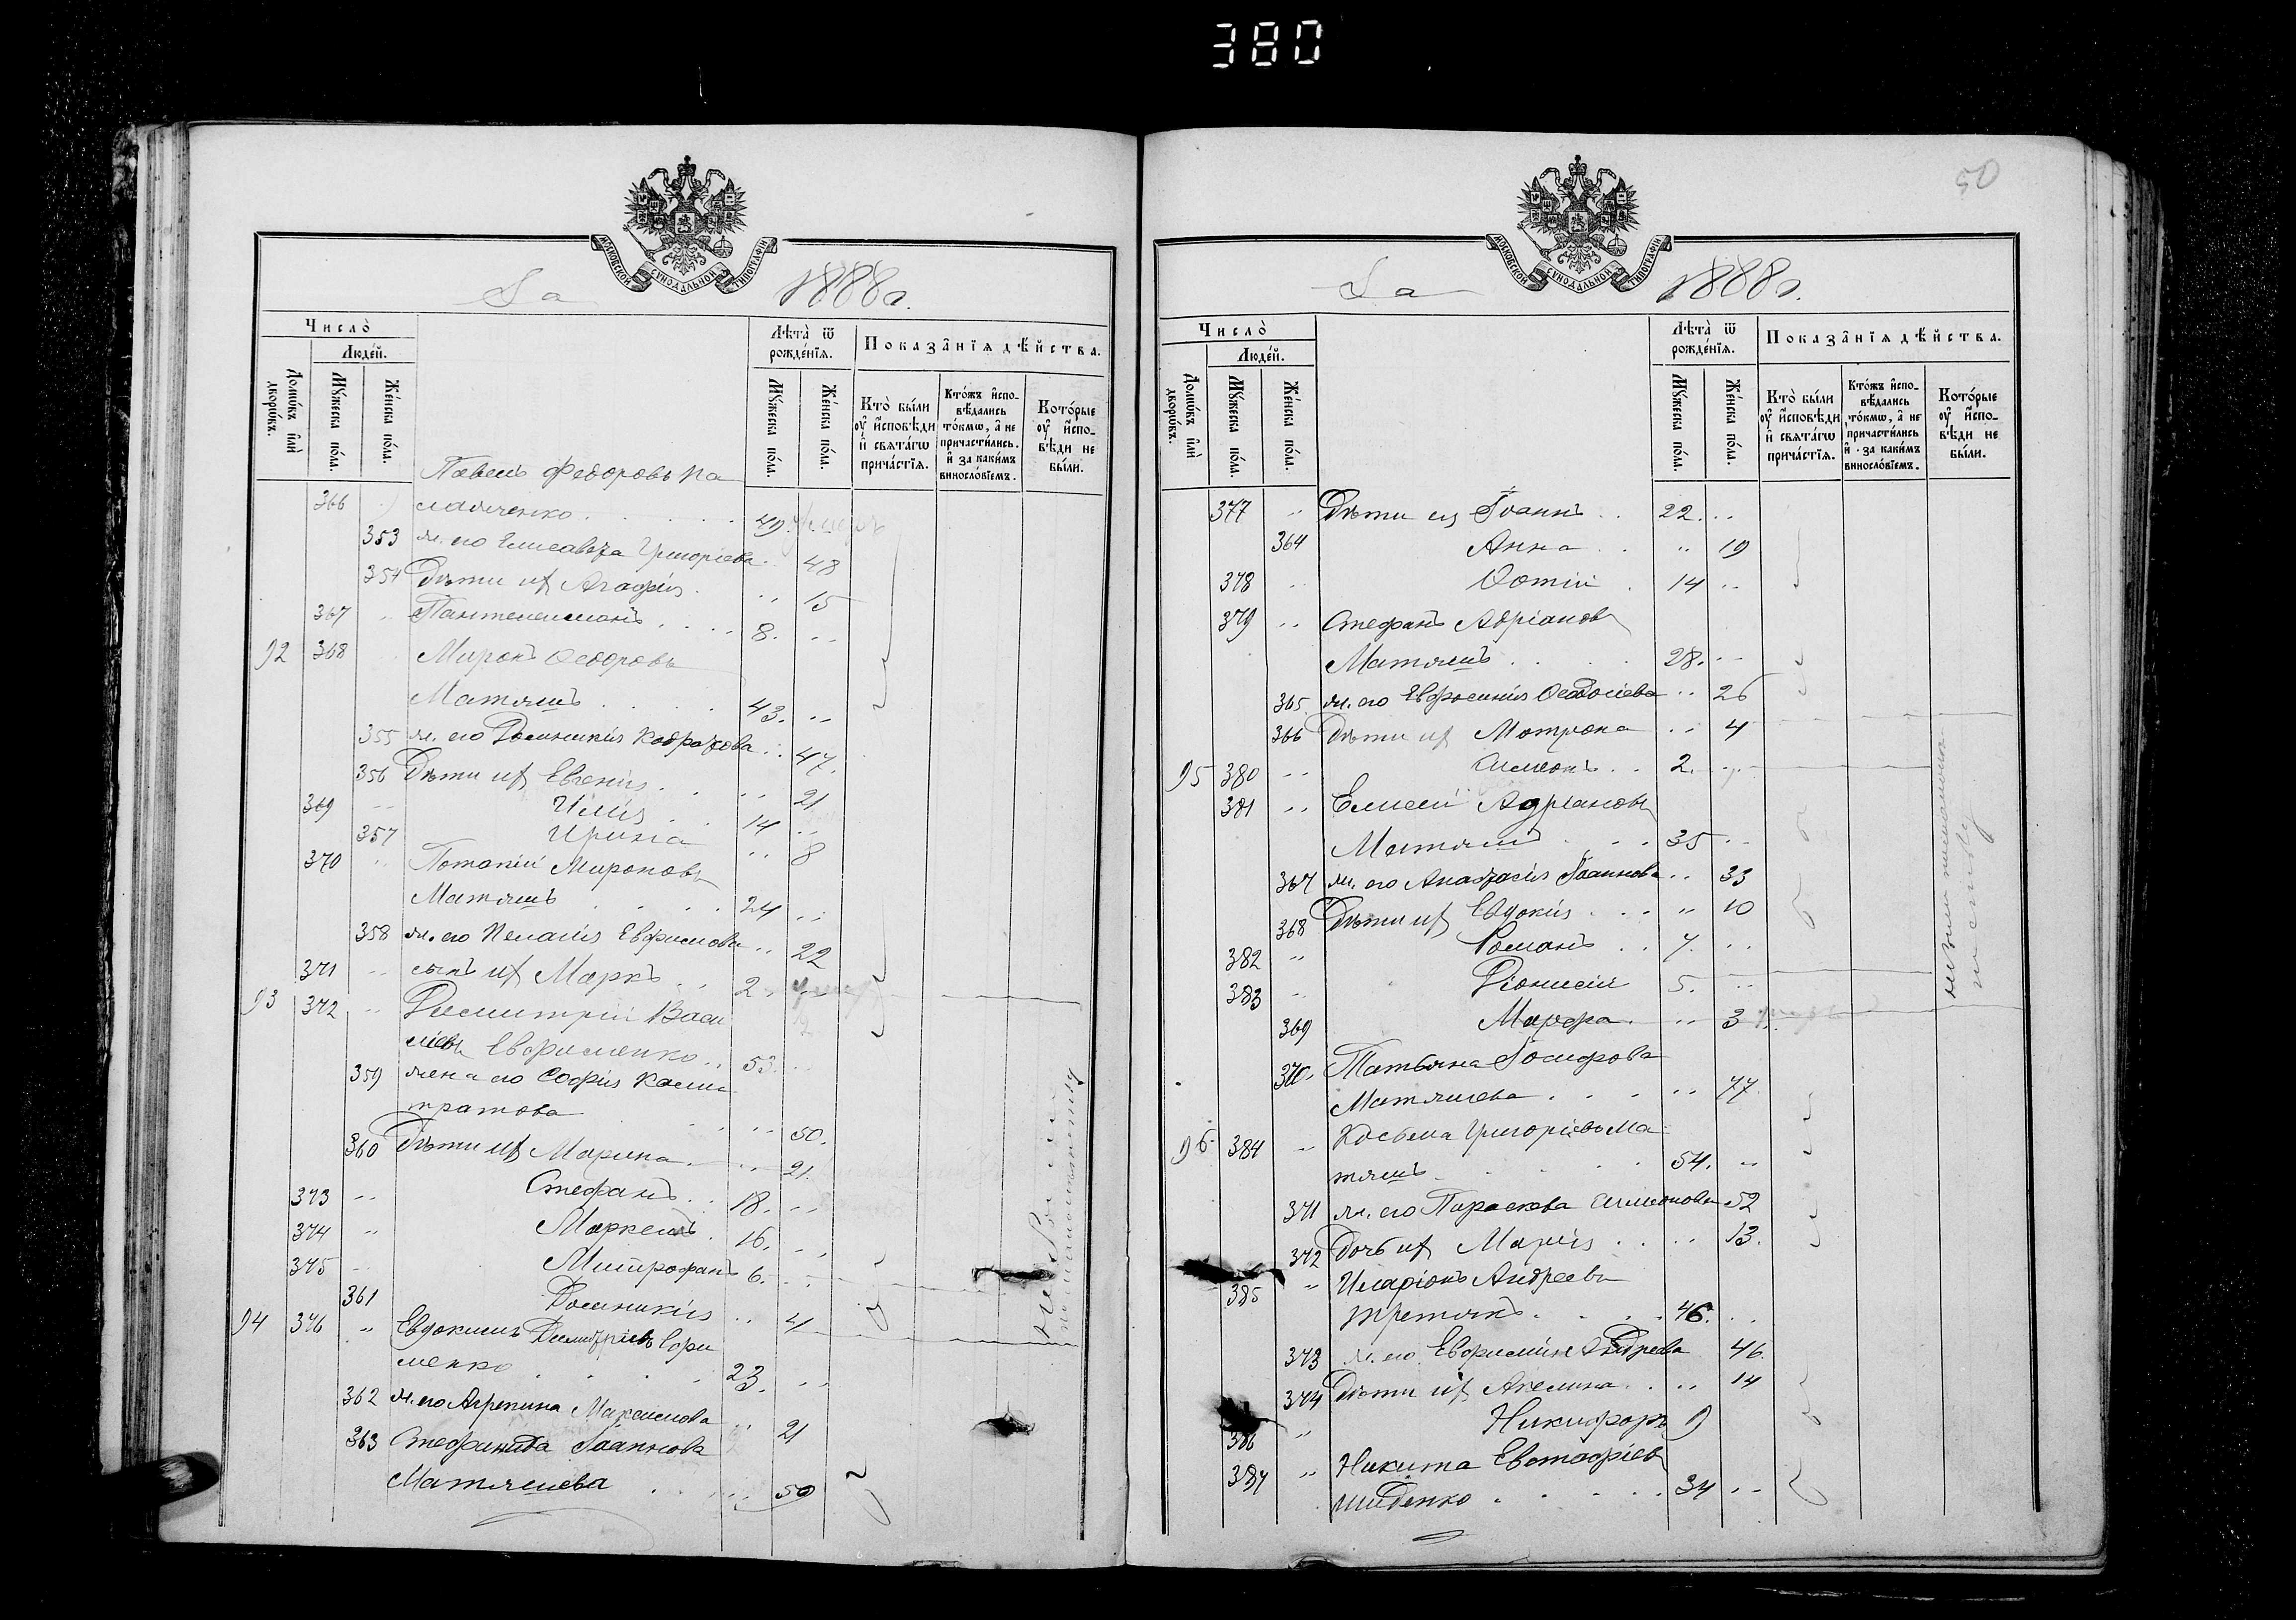 380
МОСКОВСКОЙ СѴНОДАЛЬНОЙ ТИПОГРАФІИ
За 1888 г.
Число̀
Людей.
Домѡвъ и҆лѝ дворѡвъ.
Мꙋжеска по́ла.
Же́нска по́ла.
Лѣ́та ѿ рожде́нїѧ.
Мꙋжеска по́ла.
Же́нска по́ла.
Показа̑нїѧ дѣ́йства.
Кто̀ бы́ли оу҆ и҆́сповѣди и҆ свѧта́гѡ прича́стїѧ.
Кто́жъ и҆спо-вѣ́дались то́кмѡ, а҆ не причасти́лись. и҆ за каки́мъ винослóвїемъ.
Кото́рые оу҆ и҆́спо-вѣди не бы́ли.
Павелъ Федоровъ Па
366 .. ламченко . . . . . 49.
353 ж. его Елисавета Григоріева .. 48
354 Дѣти их Агафія . .. 15
367 .. Пантелеимонъ . . . . 8. ..
92 368 Миронъ Ѳедоровъ
Матяшъ . . . . 43. ..
355 ж. его Домникія Кодратова .. 47.
356 Дѣти их Евгенія . . .. 21
369 .. Илія . . 14 ..
357 Ирина .. 8
370 .. Потапій Мироновъ
Матяшъ . . . . 24 ..
358 ж. его Пелагія Евфимова .. 22
371 .. сынъ их Маркъ . . 2.
93 372 .. Димитрій Васи
ліевъ Евфименко .. 53. .
359 жена его Софія Калли
тратова . . .. 50.
360 Дѣти их Марина . .. 21.
373 .. Стефанъ . . 18. ..
374 .. Маркелъ . 16. ..
375 .. Митрофанъ 6. ..
361 Домникія .. 4
94 376 .. Евдокимъ Димитріевъ Ефи
менко . . . . 23. ..
362 ж. его Агрепина Максимова .. 21
363 Стефанида Іоаннова
Матяшева . . .. 50
50
МОСКОВСКОЙ СѴНОДАЛЬНОЙ ТИПОГРАФІИ
За 1888 г.
Число̀
Людей.
Домѡвъ и҆лѝ дворѡвъ.
Мꙋжеска по́ла.
Же́нска по́ла.
Лѣ́та ѿ рожде́нїѧ.
Мꙋжеска по́ла.
Же́нска по́ла.
Показа̑нїѧ дѣ́йства.
Кто̀ бы́ли оу҆ и҆́сповѣди и҆ свѧта́гѡ прича́стїѧ.
Кто́жъ и҆спо-вѣ́дались то́кмѡ, а҆ не причасти́лись и҆ за каки́мъ винослóвїемъ.
Кото́рые оу҆ и҆́спо-вѣди не бы́ли.
377 .. Дѣти их Іоаннъ . . 22. ..
364 Анна . . .. 19
378 .. Ѳотій . 14 ..
379 .. Стефанъ Адріановъ
Матяшъ . . . . 28. ..
365 ж. его Евфросинія Ѳеодосіева .. 26
366 Дѣти их Мотрона .. 4
95 380 .. Симеонъ . . 2. ..
381 .. Елисей Адріановъ
Матяшъ . . . 35 ..
367 ж. его Анастасія Іоаннова .. 33
368 Дѣти их Евдокія . . . .. 10
382 .. Романъ . . 7. ..
383 .. Діонисій 5. ..
369 Марфа . .. 3
370. Татьяна Іосифова
Матяшева . . . .. 77
96 384 .. Косьма Григоріевъ Ма
тяшъ . . . . 54. ..
371 ж. его Параскева Симеонова 52
372 Дочь их Марія . . .. 13.
385 .. Иларіонъ Андреевъ
Третякъ . . . . 46. ..
373 ж. его Евфимія Андреева 46.
374 Дѣти их Акелина . . .. 14
386 .. Никифоръ 9
387 .. Никита Евстафіевъ
Шиденко . . . . . 34 ..